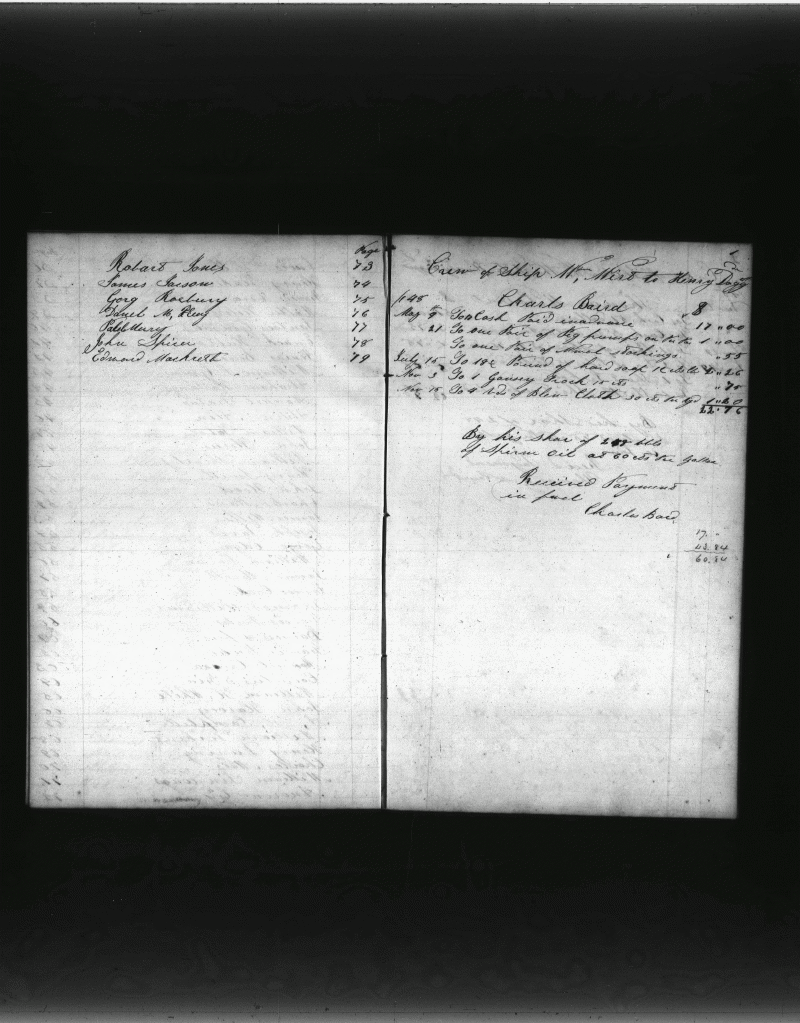 Page
Robart Jones 73
James Jarson 74
Gorg Roxbury 75
Danel Mc 76
77
John Spicer 78
Edmord Mackreth 79
1
Crew of Ship Wm Wirt to Henry
Charls Baird $
1848
May 9 To Cash Paid in advance 17 " 00
21 To one Pair of Peg pumps 1 " 00
To one Pair of stockings " 55
July 15 To Pound of hard soap 12 cts
Nov 3 To 1 Gansey Frock 75 cts " 75
Nov 15 To 4 yds of Blew Cloth 30 cts the yd 1 " 20
22.76
By his shar of bbls
of Spirm oil at 60 cts the gallon
Received Payment
in full
Charles Baird
17. "
43.84
60.84